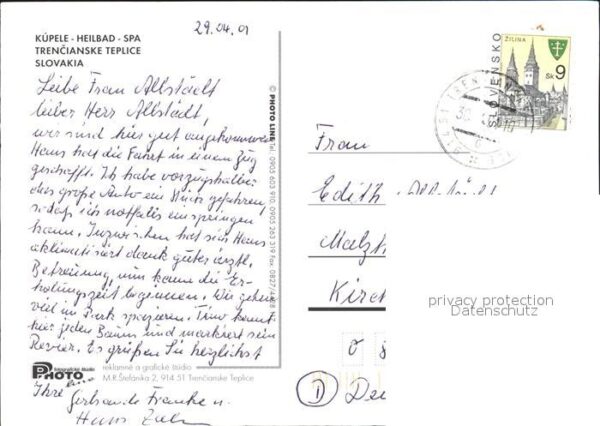 29.04.01
KÚPELE - HEILBAD - SPA
TRENČIANSKE TEPLICE
SLOVAKIA
Liebe Frau Albstädt
lieber Herr Albstädt,
wir sind hier gut angekommen
Hans hat die Fahrt in einem Zug
geschafft. Ich habe vorzugshalber
das große Auto ein Stück gefahren,
sodaß ich notfalls einspringen
kann. Inzwischen hat sich Hans
aklimatisiert dank guter ärztl.
Betreuung, nun kann die Er-
holungszeit beginnen. Wir gehen
viel im Park spazieren. Timo kennt
hier jeden Baum und markiert sein
Revier. Es grüßen Sie herzlichst
Ihre Franke u.
Hans
© PHOTO LINE Tel. 0905 603 910, 0905 263 319 Fax: 0827/4428
fotografické štúdio
PHOTO
line
reklamné a grafické štúdio
M.R.Štefánika 2, 914 51 Trenčianske Teplice
ŽILINA
SLOVENSKO
Sk 9
30
Frau
Edith
Kirch
privacy protection
Datenschutz
D